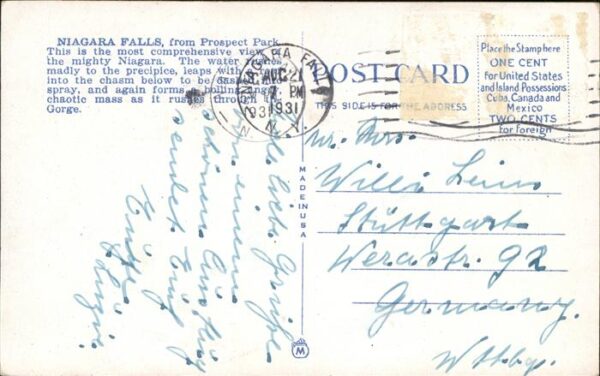 NIAGARA FALLS, from Prospect Park.
This is the most comprehensive view of
the mighty Niagara. The water rushes
madly to the precipice, leaps with
into the chasm below to be dashed
spray, and again forms a boiling, angry
chaotic mass as it rushes through the
Gorge.
NIAGARA FALLS
AUG 21
7 PM
1931
N.Y.
POST CARD
THIS SIDE IS FOR THE ADDRESS
Place the Stamp here
ONE CENT
for United States
and Island Possessions
Cuba, Canada and
Mexico
TWO CENTS
for Foreign
MADE IN USA
M
Mr. Mrs.
Willi
Stuttgart
Werastr. 92
Germany.
Wttbg.
liebe Grüße
von einem
schönen Ausflug
sendet Euch